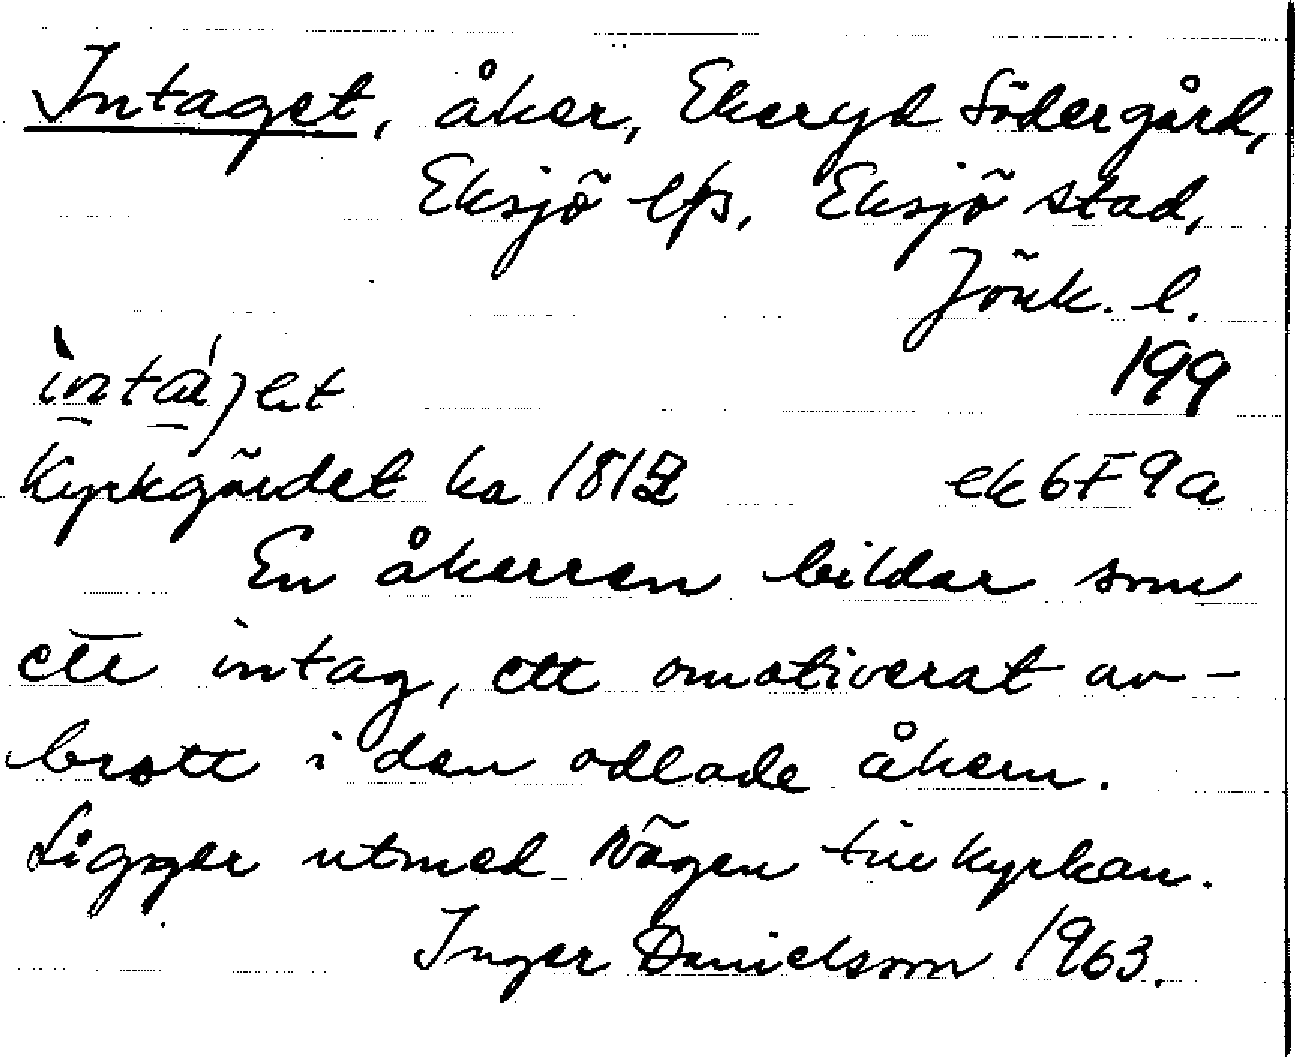 Intaget, åker, Ekeryd Södergård,
Eksjö lfs, Eksjö stad,
Jönk. l.
199
Kyrkgärdet ka 1812 ek 6F9a
En åkerren bildar som
ett intag, ett omotiverat av-
brott i den odlade åkern.
Ligger utmed vägen till kyrkan.
Inger Danielsson 1963.